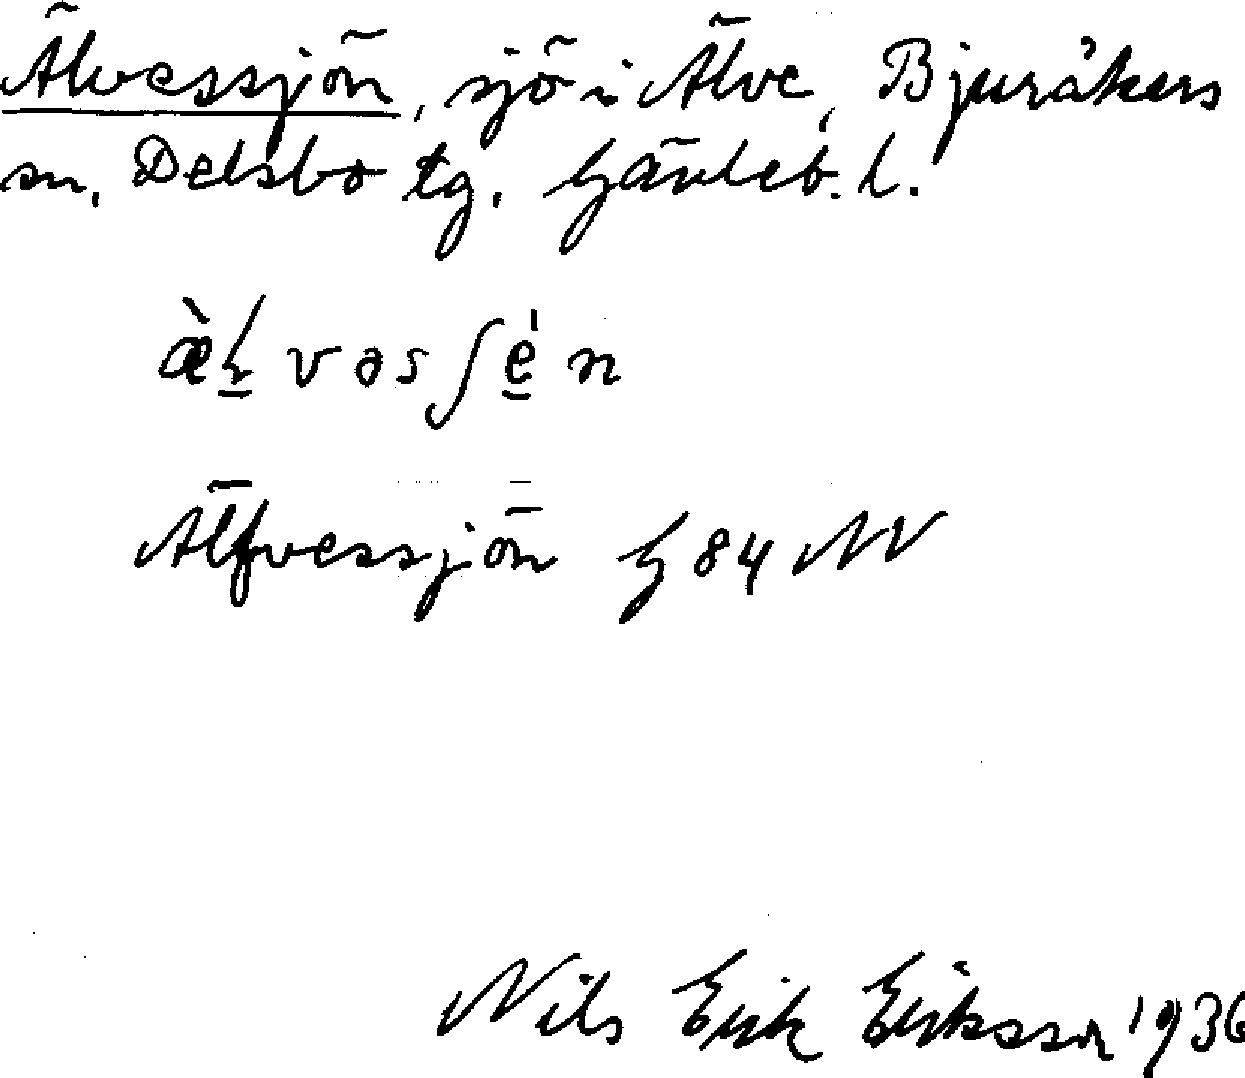 Älvessjön, sjö i Älve, Bjuråkers
sn, Delsbo tg, Gävleb. l.
æ̀ɫ̲vəsʃe̲̍n
Älfvessjön G 84 NV
Nils Erik Eriksson 1936